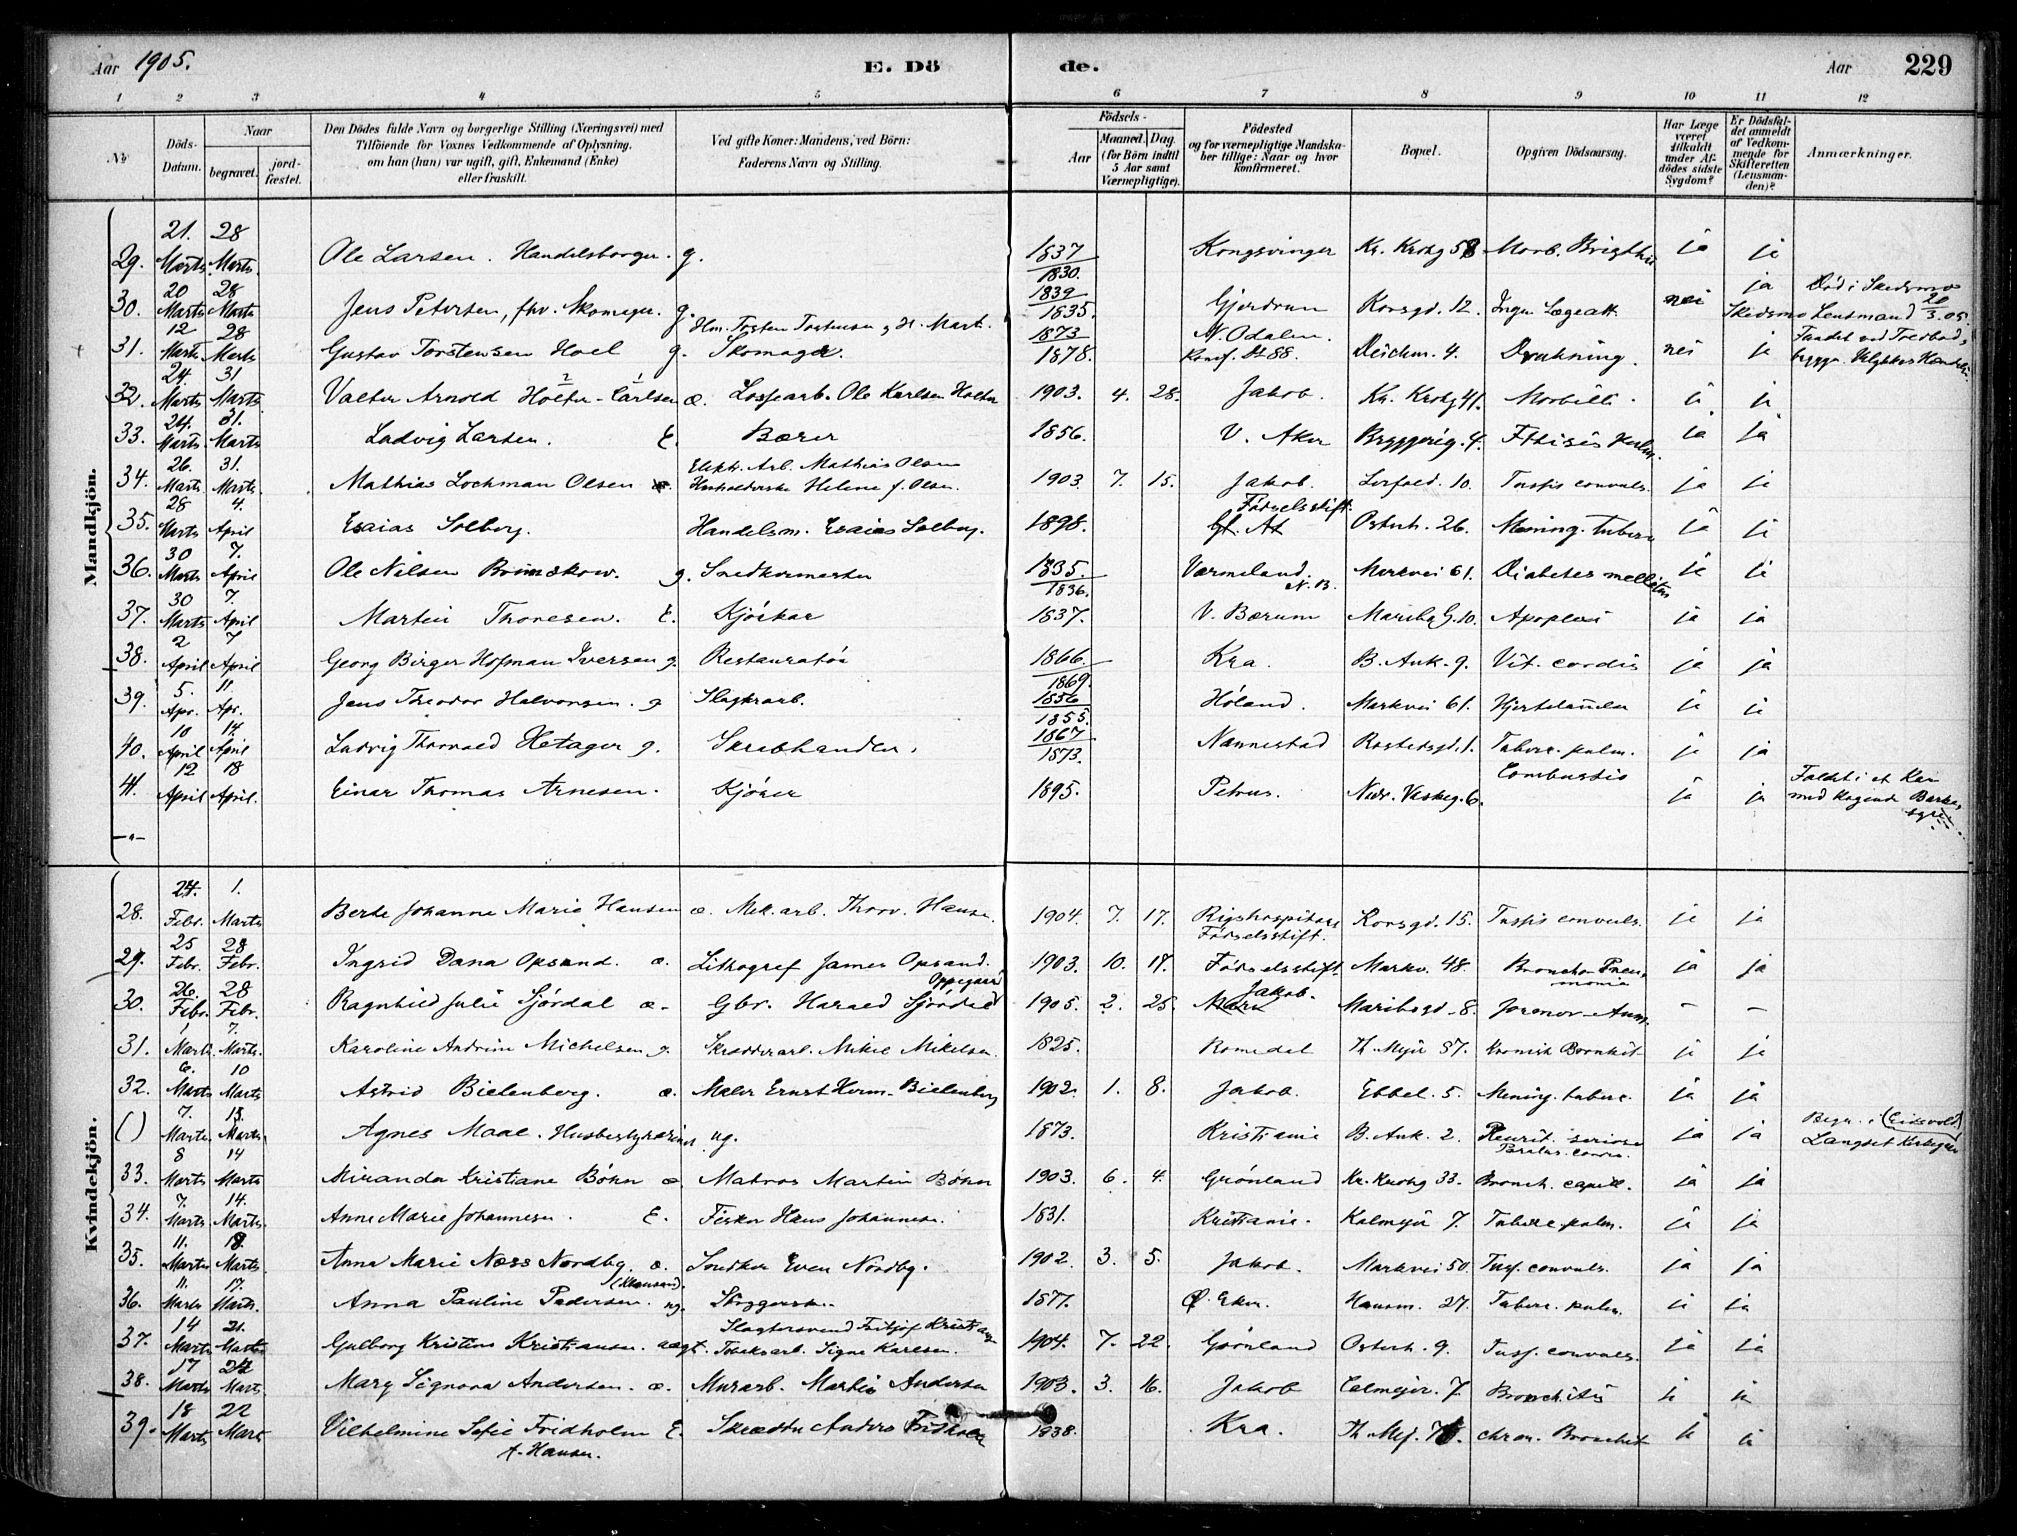 Aar 1905. E. Dö de. Aar 229
1 2 3 4 5 6 7 8 9 10 11 12
No
Döds-Datum.
Naar
begravet.
jord-fæstet.
Den Dödes fulde Navn og borgerlige Stilling (Næringsvei) med Tilföiende for Voxnes Vedkommende af Oplysning, om han (hun) var ugift, gift, Enkemand (Enke) eller fraskilt.
Ved gifte Koner: Mandens, ved Börn: Faderens Navn og Stilling.
Födsels-
Aar
Maaned. Dag.
(for Börn indtil 5 Aar samt Værnepligtige).
Födested og for værnepligtige Mandskaber tillige: Naar og hvor konfirmeret.
Bopæl.
Opgiven Dödsaarsag.
Har Læge været tilkaldt under Afdödes sidste Sygdom?
Er Dödsfaldet anmeldt af Vedkommende for Skifteretten (Lensmanden)?
Anmærkninger.
Mandkjön.
29. 21. Marts 28 Marts. Ole Larsen. Handelsborger. g. 1837 1830. Kongsvinger Kr. Krohg 58 Morb. Brigthii ja ja
30. 20 Marts 28 Marts Jens Petersen, fhv. Skomager. g. 1839 1835. Gjerdrum Korsgd. 12. Ingen Lægeatt. nei ja Død i Skedsmo Skedsmo Lensmand 20/3 05.
31. 12 Marts 28 Marts Gustav Torstensen Hoel g. Skomager. 1873 1878. N. Odalen. Konf. 88. Deichm. 4. Drukning. nei ja Fundet ved
32. 24. Marts 31 Marts. Valter Arnold Holter-Carlsen æ. Lossearb. Ole Karlsen Holter 1903. 4. 28. Jakob. Kr. Krohg 41. Morbilli. ja ja
33. 24. Marts 31. Marts Ludvig Larsen. E. Bærer 1856. V. Aker Bryggerig. 4. Fthisis ja ja
34. 26. Marts 31. Marts. Mathias Lochman Olsen Elektr. Arb. Mathias Olsen Husholderske Helene f. Olsen. 1903 7. 15. Jakob. 10. Tussis convuls. ja ja
35. 28 Marts 4. April Esaias Solberg. Handelsm. Esaias Solberg. 1898. Fødselsstift. Osterh. 26. Mening. tuberc ja ja
36. 30 Marts 7. April Ole Nilsen Brunskow. g. Snedkermester 1835. 1836. Værmeland N.B. Markvei 61. Diabetes mellitus ja ja
37. 30 Marts 7. April Martin Thoresen. E. Kjörkar 1837. V. Bærum Maribg. 10. Apoplexi ja ja
38. 2 April 7 April Georg Birger Hofman Iversen g. Restauratör 1866 1869. Kra. B. Ank. 9. Vit. cordis ja ja
39. 5. Apr. 11. Apr. Jens Theodor Halvorsen. g 1856 1855. Höland. Markvei 61. ja ja
40. 10 April 14. April Ludvig Thorvald Hetager g. Skrabhandler. 1867 1873. Nannestad Rostedsgd. 1. Taberc. pulm. ja ja
41. 12 April 18 April. Einar Thomas Arnesen. Kjörer 1895. Petrus. Nedr. Vaskeg. 6. Combustio ja ja Faldt i et Kar med kogende
—"—
Kvindekjön.
28. 24. Febr. 1. Marts Berte Johanne Marie Hansen æ. Mek. arb. Thorv. Hansen. 1904. 7. 17. Rigshospitalets Fødselsstift. Korsgd. 15. Tussis convuls. ja ja
29. 25 Febr. 28 Febr. Ingrid Dana Opsand. æ. Lithograf James Opsand. Oppegaard 1903. 10. 17. Fødselsstift. Markv. 48. Broncho Pneumonia ja ja
30. 26. Febr. 28 Febr. Ragnhild Julie Sjördal æ. Gbr. Harald Sjördal 1905. 2. 25. Jakob. Maribogd. 8. — —
31. 1 Marts 7. Marts. Karoline Andrine Michelsen g. Skrædderarb. Mikal Mikelsen. 1825. Romedal Th. Mejer 87. Kronisk Bronkit ja ja
32. 6. Marts 10 Marts Astrid Bielenberg. æ. Maler Ernst Herm. Bielenberg 1902. 1. 8. Jakob. Ebbel. 5. Mening. taberc. ja ja
() 7. Marts. 13. Marts. Agnes Maae. Husbestyrerinde ug. 1873. Kristiania B. Ank. 2. ja ja Begr. i (Eidsvold) Langset
33. 8 Marts 14 Marts Miranda Kristiane Böhn æ. Matros Martin Böhn 1903. 6. 4. Grönland Kr. Krohg 33. Bronch. capill. ja ja
34. 7. Marts 14. Marts. Anne Marie Johannesen. E. Fisker Hans Johannesen. 1831. Kristiania. Kalmejer 7. Taberc. pulm. ja ja
35. 11. Marts 18. Marts. Anna Marie Næss Nordbg. æ. Snedker Even Nordbg. 1902. 3. 5. Jakob. Markvei 50. Tuss. convuls. ja ja
36. 11. Marts 17. Marts. Anna Pauline Pedersen. ug. Stryggerske. 1877. Ø. Eker. Hausm. 27. Taberc. pulm. ja ja
37. 14 Marts 21. Marts Gulborg Kristine Kristiansen uægt. Slagtersvend Fritjof Kristiansen Tobaksarb. Signe Karlsen. 1904. 7. 22. Grönland Osterh. 9. Tuss. convuls. ja ja
38. 17 Marts 24 Marts. Mary Signora Andersen. æ. Murarb. Martin Andersen 1903. 3. 16. Jakob Calmejer. 7. Bronchitis ja ja
39. 18 Marts 22 Marts Vilhelmine Sofie Fridholm f. Hansen. E. Skrædder Anders Fridholm 1838. Kra. Th. Mej. chron. Bronchit ja ja